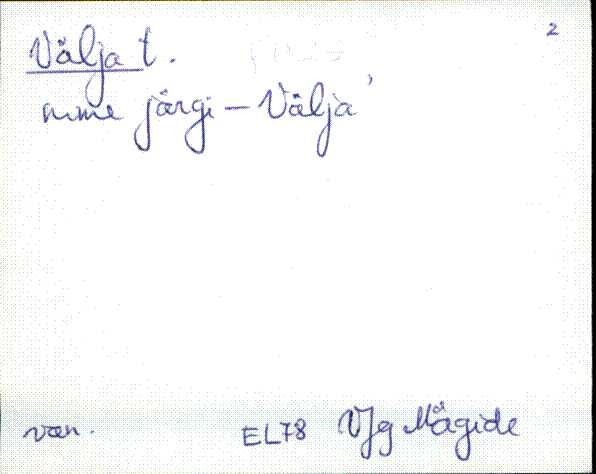 2
Välja t.
nime järgi – Välja'
van. EL78 VJg Mägide